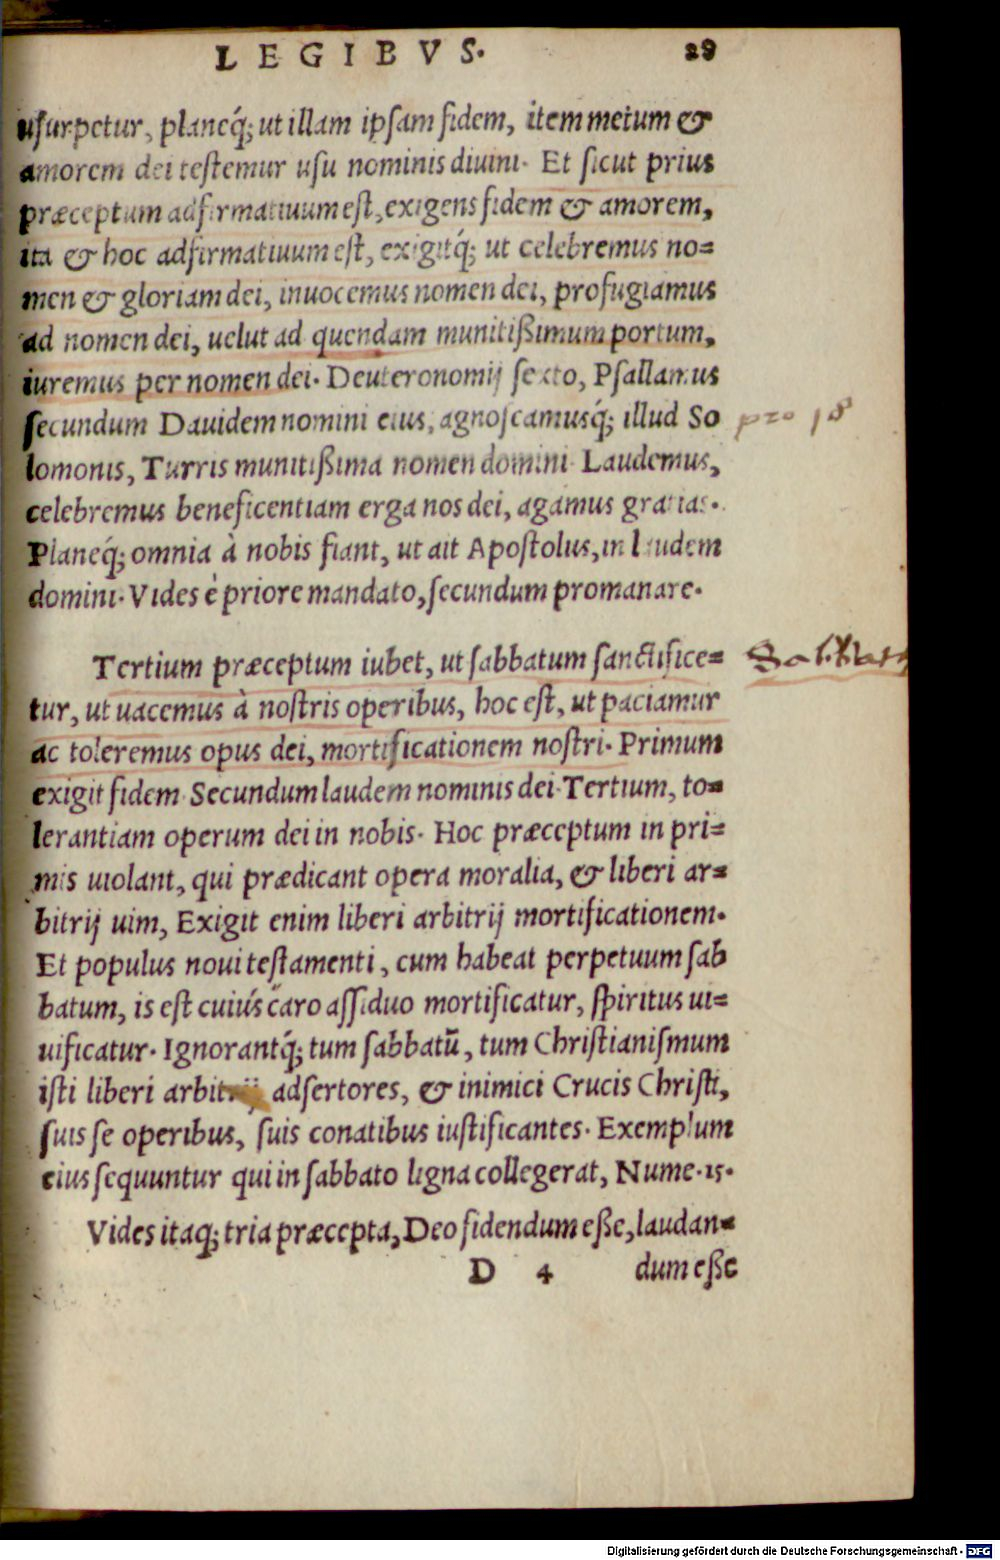 LEGIBVS. 29
uſurpetur, planeq́; ut illam ipſam fidem, item metum &
amorem dei teſtemur uſu nominis diuini. Et ſicut prius
præceptum adfirmatiuum eſt, exigens fidem & amorem,
ita & hoc adfirmatiuum eſt, exigitq́; ut celebremus no=
men & gloriam dei, inuocemus nomen dei, profugiamus
ad nomen dei, uelut ad quendam munitißimum portum,
iuremus per nomen dei. Deuteronomij ſexto, Pſallamus
ſecundum Dauidem nomini eius, agnoſcamusq́; illud So
pro 18
lomonis, Turris munitißima nomen domini. Laudemus,
celebremus beneficentiam erga nos dei, agamus gratias.
Planeq́; omnia à nobis fiant, ut ait Apoſtolus, in laudem
domini. Vides è priore mandato, ſecundum promanare.
Tertium præceptum iubet, ut ſabbatum ſanctifice=
tur, ut uacemus à noſtris operibus, hoc eſt, ut paciamur
ac toleremus opus dei, mortificationem noſtri. Primum
exigit fidem. Secundum laudem nominis dei. Tertium, to=
lerantiam operum dei in nobis. Hoc præceptum in pri=
mis uiolant, qui prædicant opera moralia, & liberi ar=
bitrij uim, Exigit enim liberi arbitrij mortificationem.
Et populus noui teſtamenti, cum habeat perpetuum ſab
batum, is eſt cuius caro aſſiduo mortificatur, ſpiritus ui=
uificatur. Ignorantq́; tum ſabbatū, tum Chriſtianiſmum
iſti liberi arbitrij adſertores, & inimici Crucis Chriſti,
ſuis ſe operibus, ſuis conatibus iuſtificantes. Exemplum
eius ſequuntur qui in ſabbato ligna collegerat, Nume. 15.
Vides itaq; tria præcepta, Deo fidendum eße, laudan=
D 4 dum eße
Digitalisierung gefördert durch die Deutsche Forschungsgemeinschaft - DFG